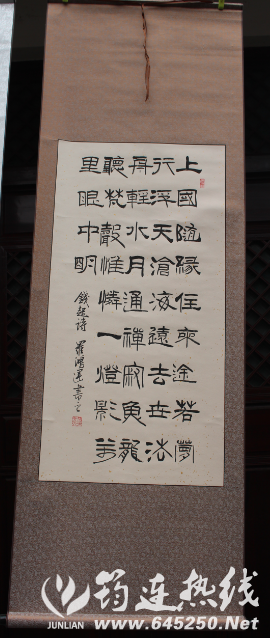 上國隨緣住來途若夢
行浮天滄海遠去世法
舟輕水月通禪寂魚龍
聽梵聲惟憐一燈影万
里眼中明
錢起詩 羅鴻書之
筠连热线
JUNLIAN
www.645250.Net